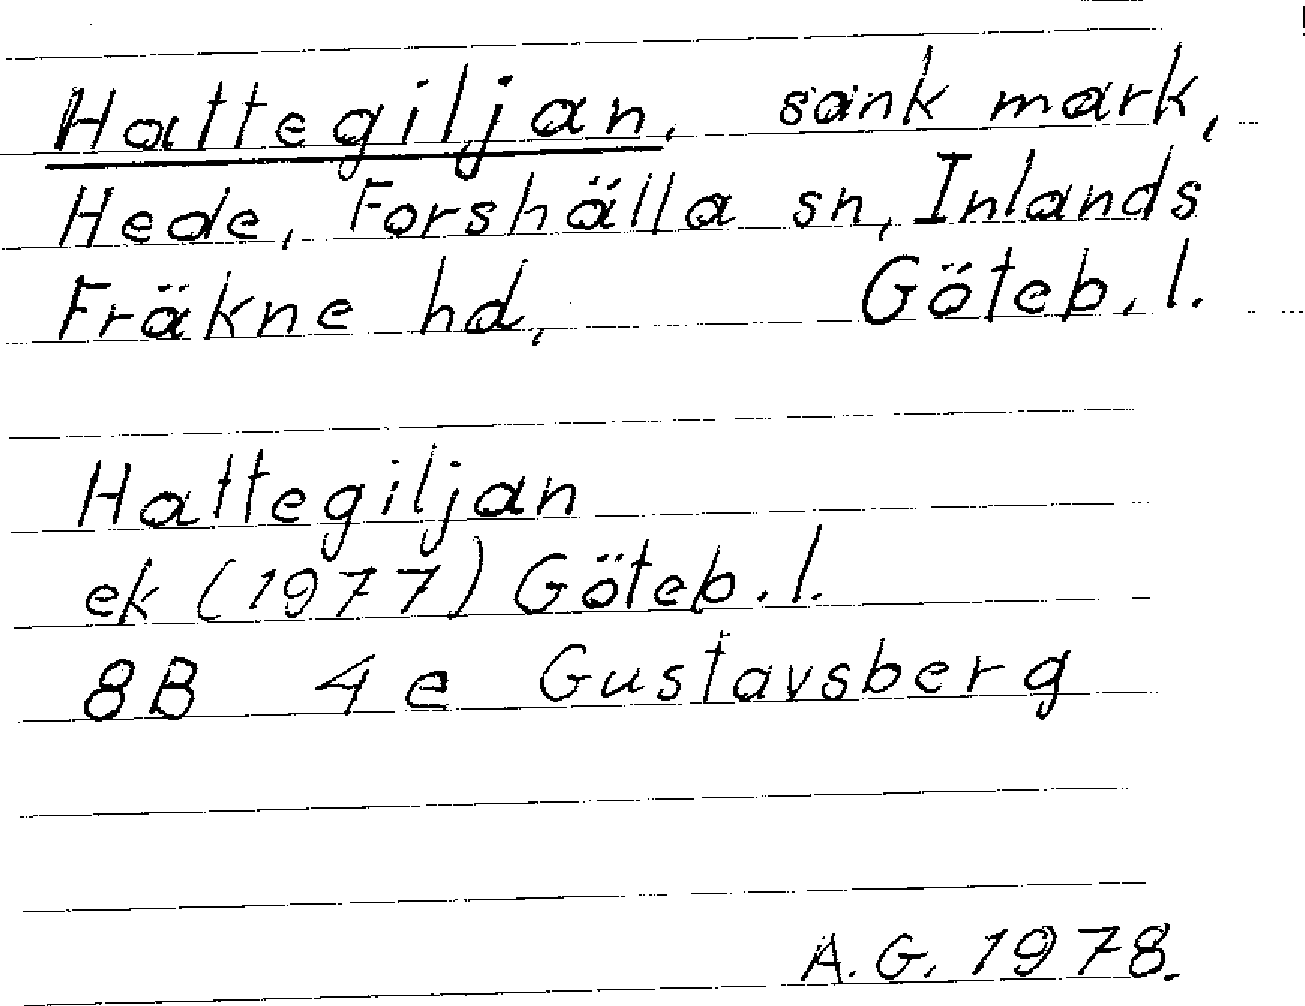 Hattegiljan, sank mark,
Hede, Forshälla sn, Inlands
Fräkne hd, Göteb. l.
Hattegiljan
ek (1977) Göteb. l.
8B 4e Gustavsberg
A. G. 1978.